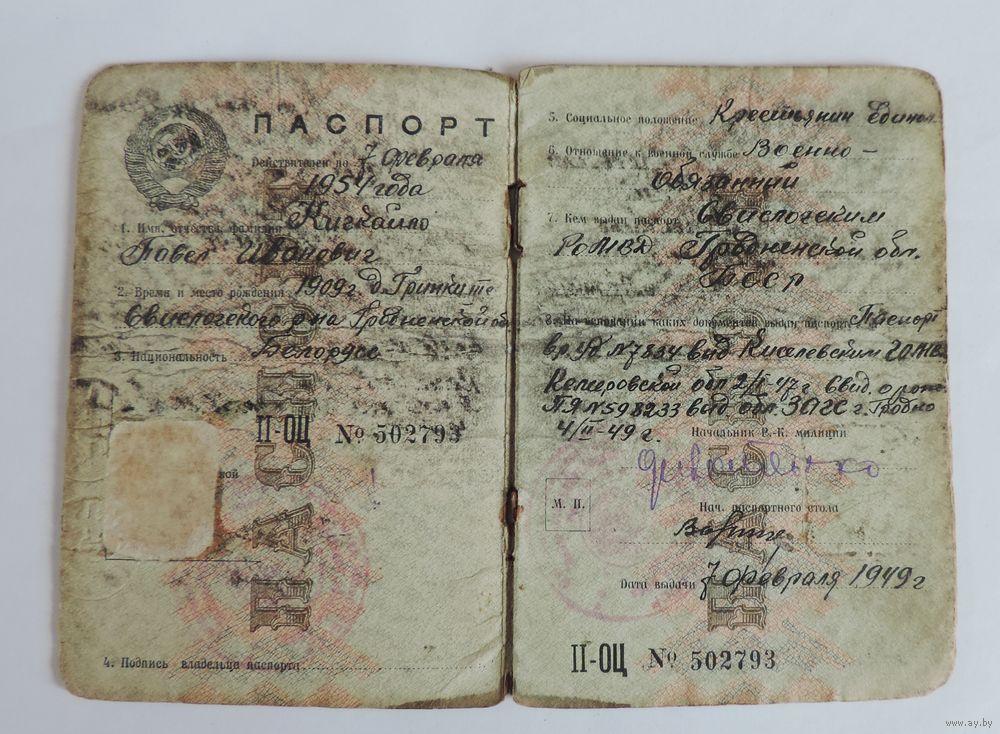 ПАСПОРТ
Действителен по 7 февраля
1954 года
1. Имя, отчество, фамилия
Павел Иванович
2. Время и место рождения 1909 г. д. Гринки
Свислочского р-на Гродненской об
3. Национальность Белорусс
II-ОЦ № 502793
4. Подпись владельца паспорта
5. Социальное положение Крестьянин Един.
6. Отношение к военной службе Военно-
Обязанний
7. Кем выдан паспорт Свислочским
РОМВД Гродненской обл.
БССР
8. На основании каких документов выдан паспорт Паспорт
вр. уд. N7834 выд Киселевским ГОМВД
Кемеровской обл 2/I-47г. Свид. о рожд.
N598233 выд. обл. ЗАГС г. Гродно
4/II-49 г.
Начальник Р.-К. милиции
М. П.
Нач. паспортного стола
Дата выдачи 7 февраля 1949 г
II-ОЦ № 502793
www.ay.by